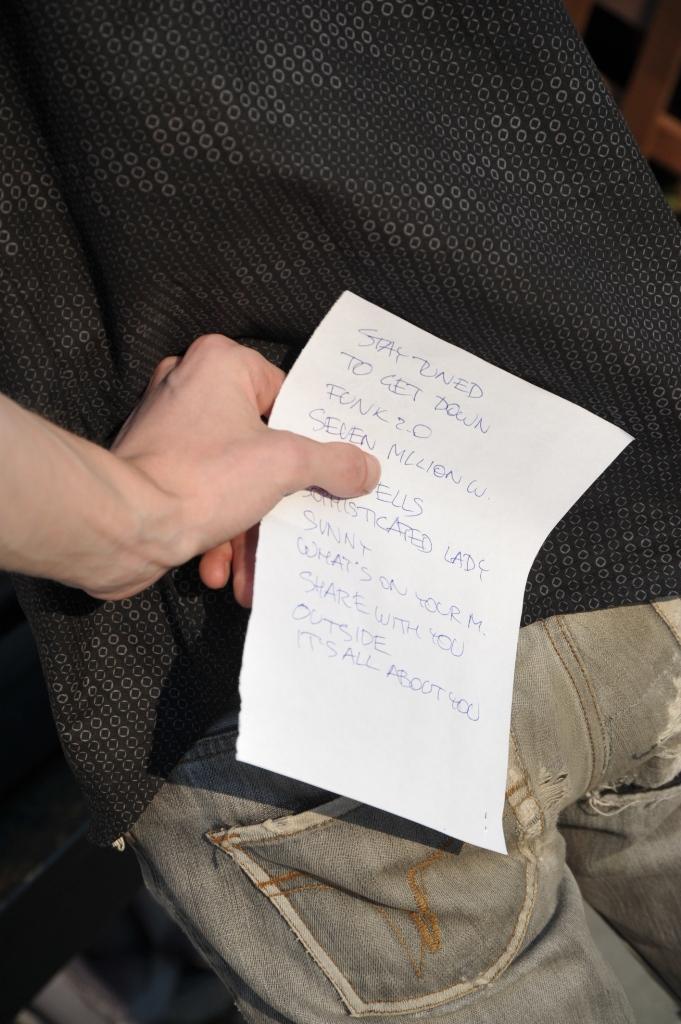 STAY TUNED
TO GET DOWN
FUNK 2.0
SEVEN MILLION W.
ELLS
SOPHISTICATED LADY
SUNNY
WHAT'S ON YOUR M.
SHARE WITH YOU
OUTSIDE
IT'S ALL ABOUT YOU